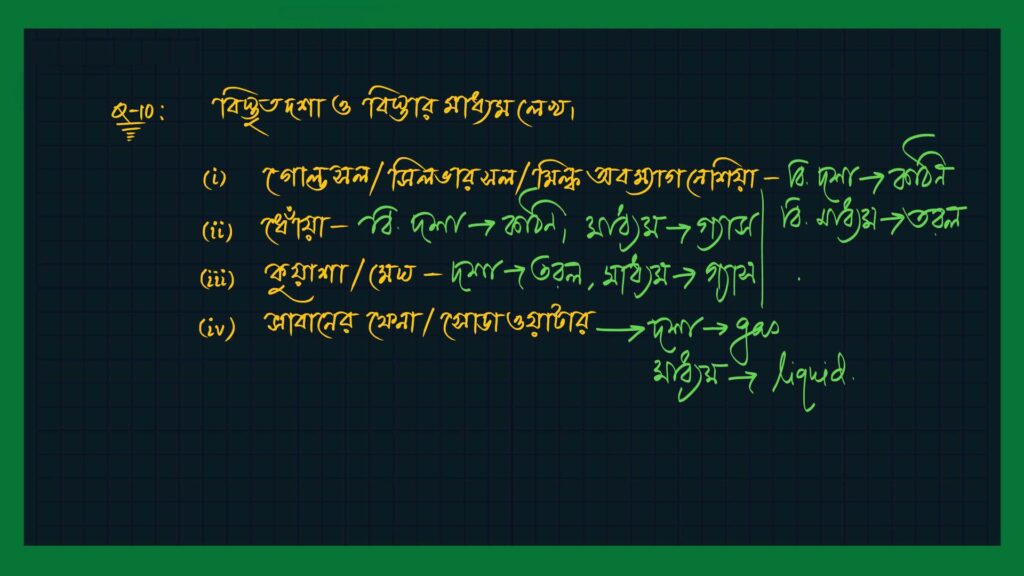 Q-10: বিস্তৃতদশা ও বিস্তার মাধ্যম লেখ।
(i) গোল্ডসল/সিলভারসল/মিল্ক অব ম্যাগনেশিয়া – বি. দশা → কঠিন
বি. মাধ্যম → তরল
(ii) ধোঁয়া – বি. দশা → কঠিন, মাধ্যম → গ্যাস
(iii) কুয়াশা/মেঘ – দশা → তরল, মাধ্যম → গ্যাস
(iv) সাবানের ফেনা/সোডা ওয়াটার → দশা → gas
মাধ্যম → liquid.